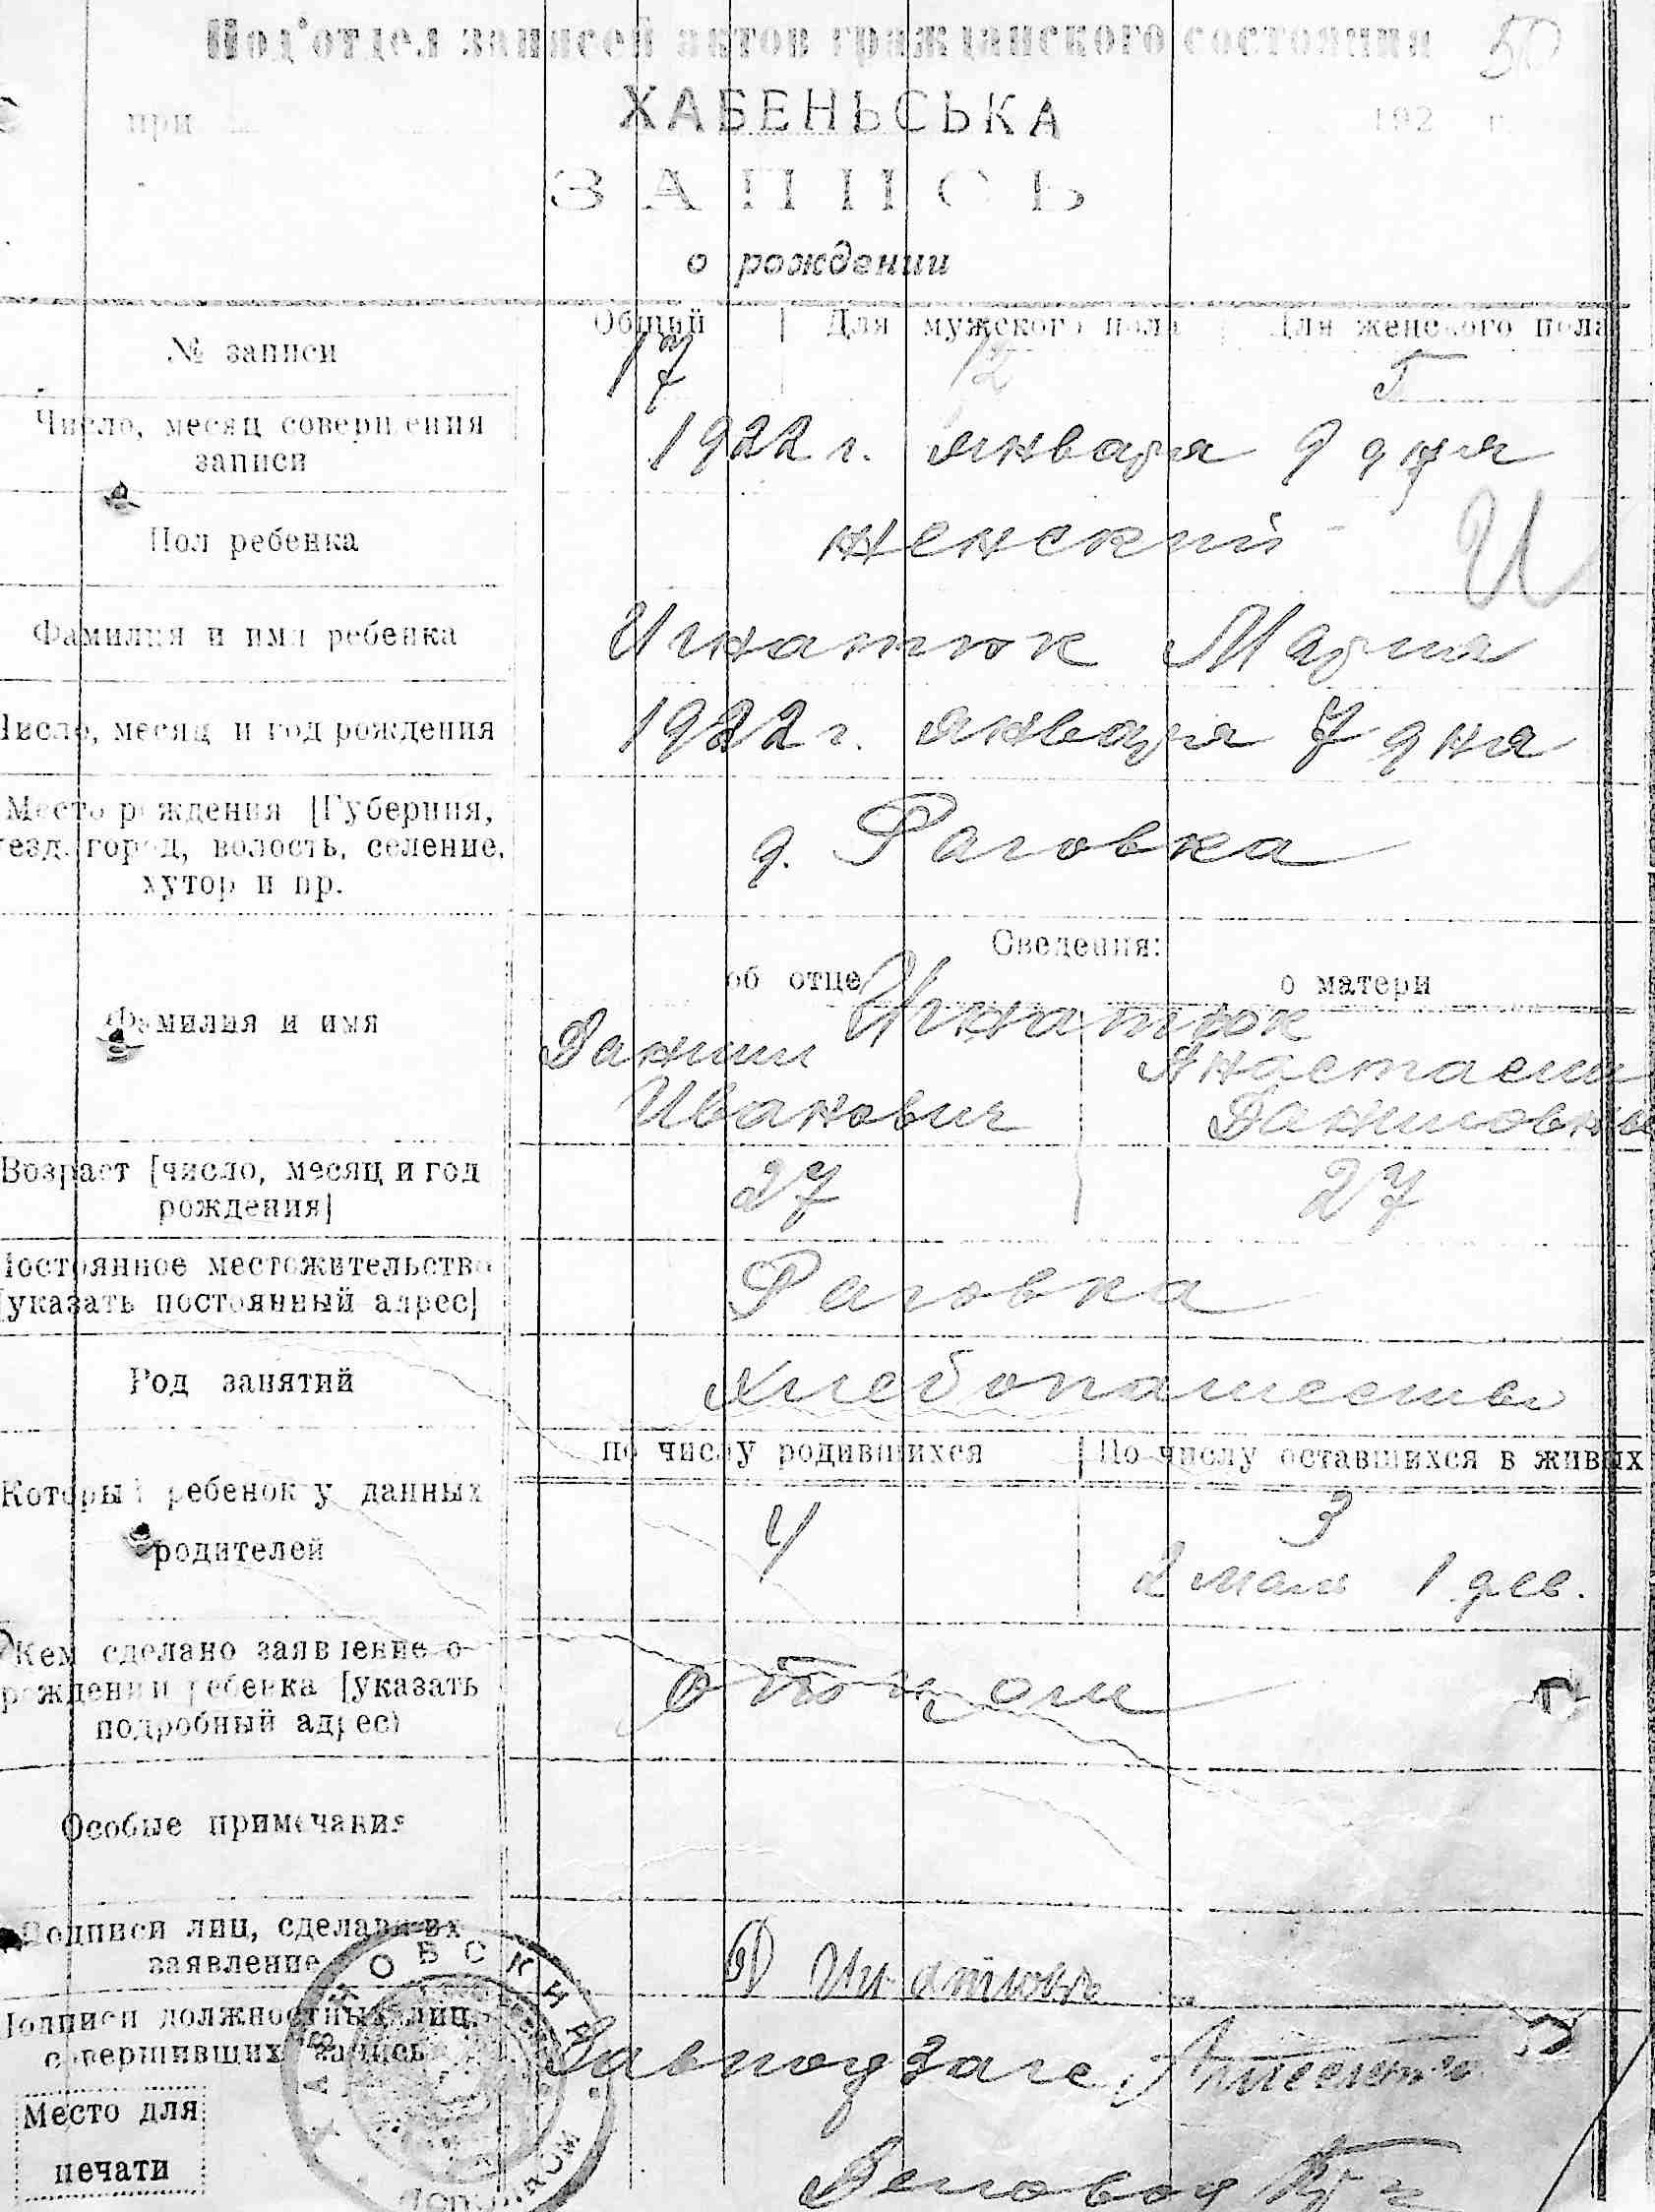 Под'отдел записей актов гражданского состояния 50
при ХАБЕНЬСЬКА 192 г.
ЗАПИСЬ
о рождении
№ записи
Общий | Для мужского пола | Для женского пола
17 12 5
Число, месяц совершения
записи
1922 г. января 9 дня
Пол ребенка
женский
И
Фамилия и имя ребенка
Игнатюк Мария
Число, месяц и год рождения
1922 г. января 7 дня
Место рождения [Губерния,
уезд, город, волость, селение,
хутор и пр.
д. Раговка
Сведения:
об отце о матери
Фамилия и имя
Игнатюк
Данил Анастасия
Иванович Даниловна
Возраст [число, месяц и год
рождения]
27 27
Постоянное местожительство
[указать постоянный адрес]
Раговка
Род занятий
хлебопашество
по числу родившихся | По числу оставшихся в живых
Который ребенок у данных
родителей
4 3
2 мал 1 дев.
Кем сделано заявление о
рождении ребенка [указать
подробный адрес)
отцом
Особые примечания
Подписи лиц, сделавших
заявление
Д
Подписи должностных лиц,
совершивших запись
Завподзагс
Место для
печати
Деловод